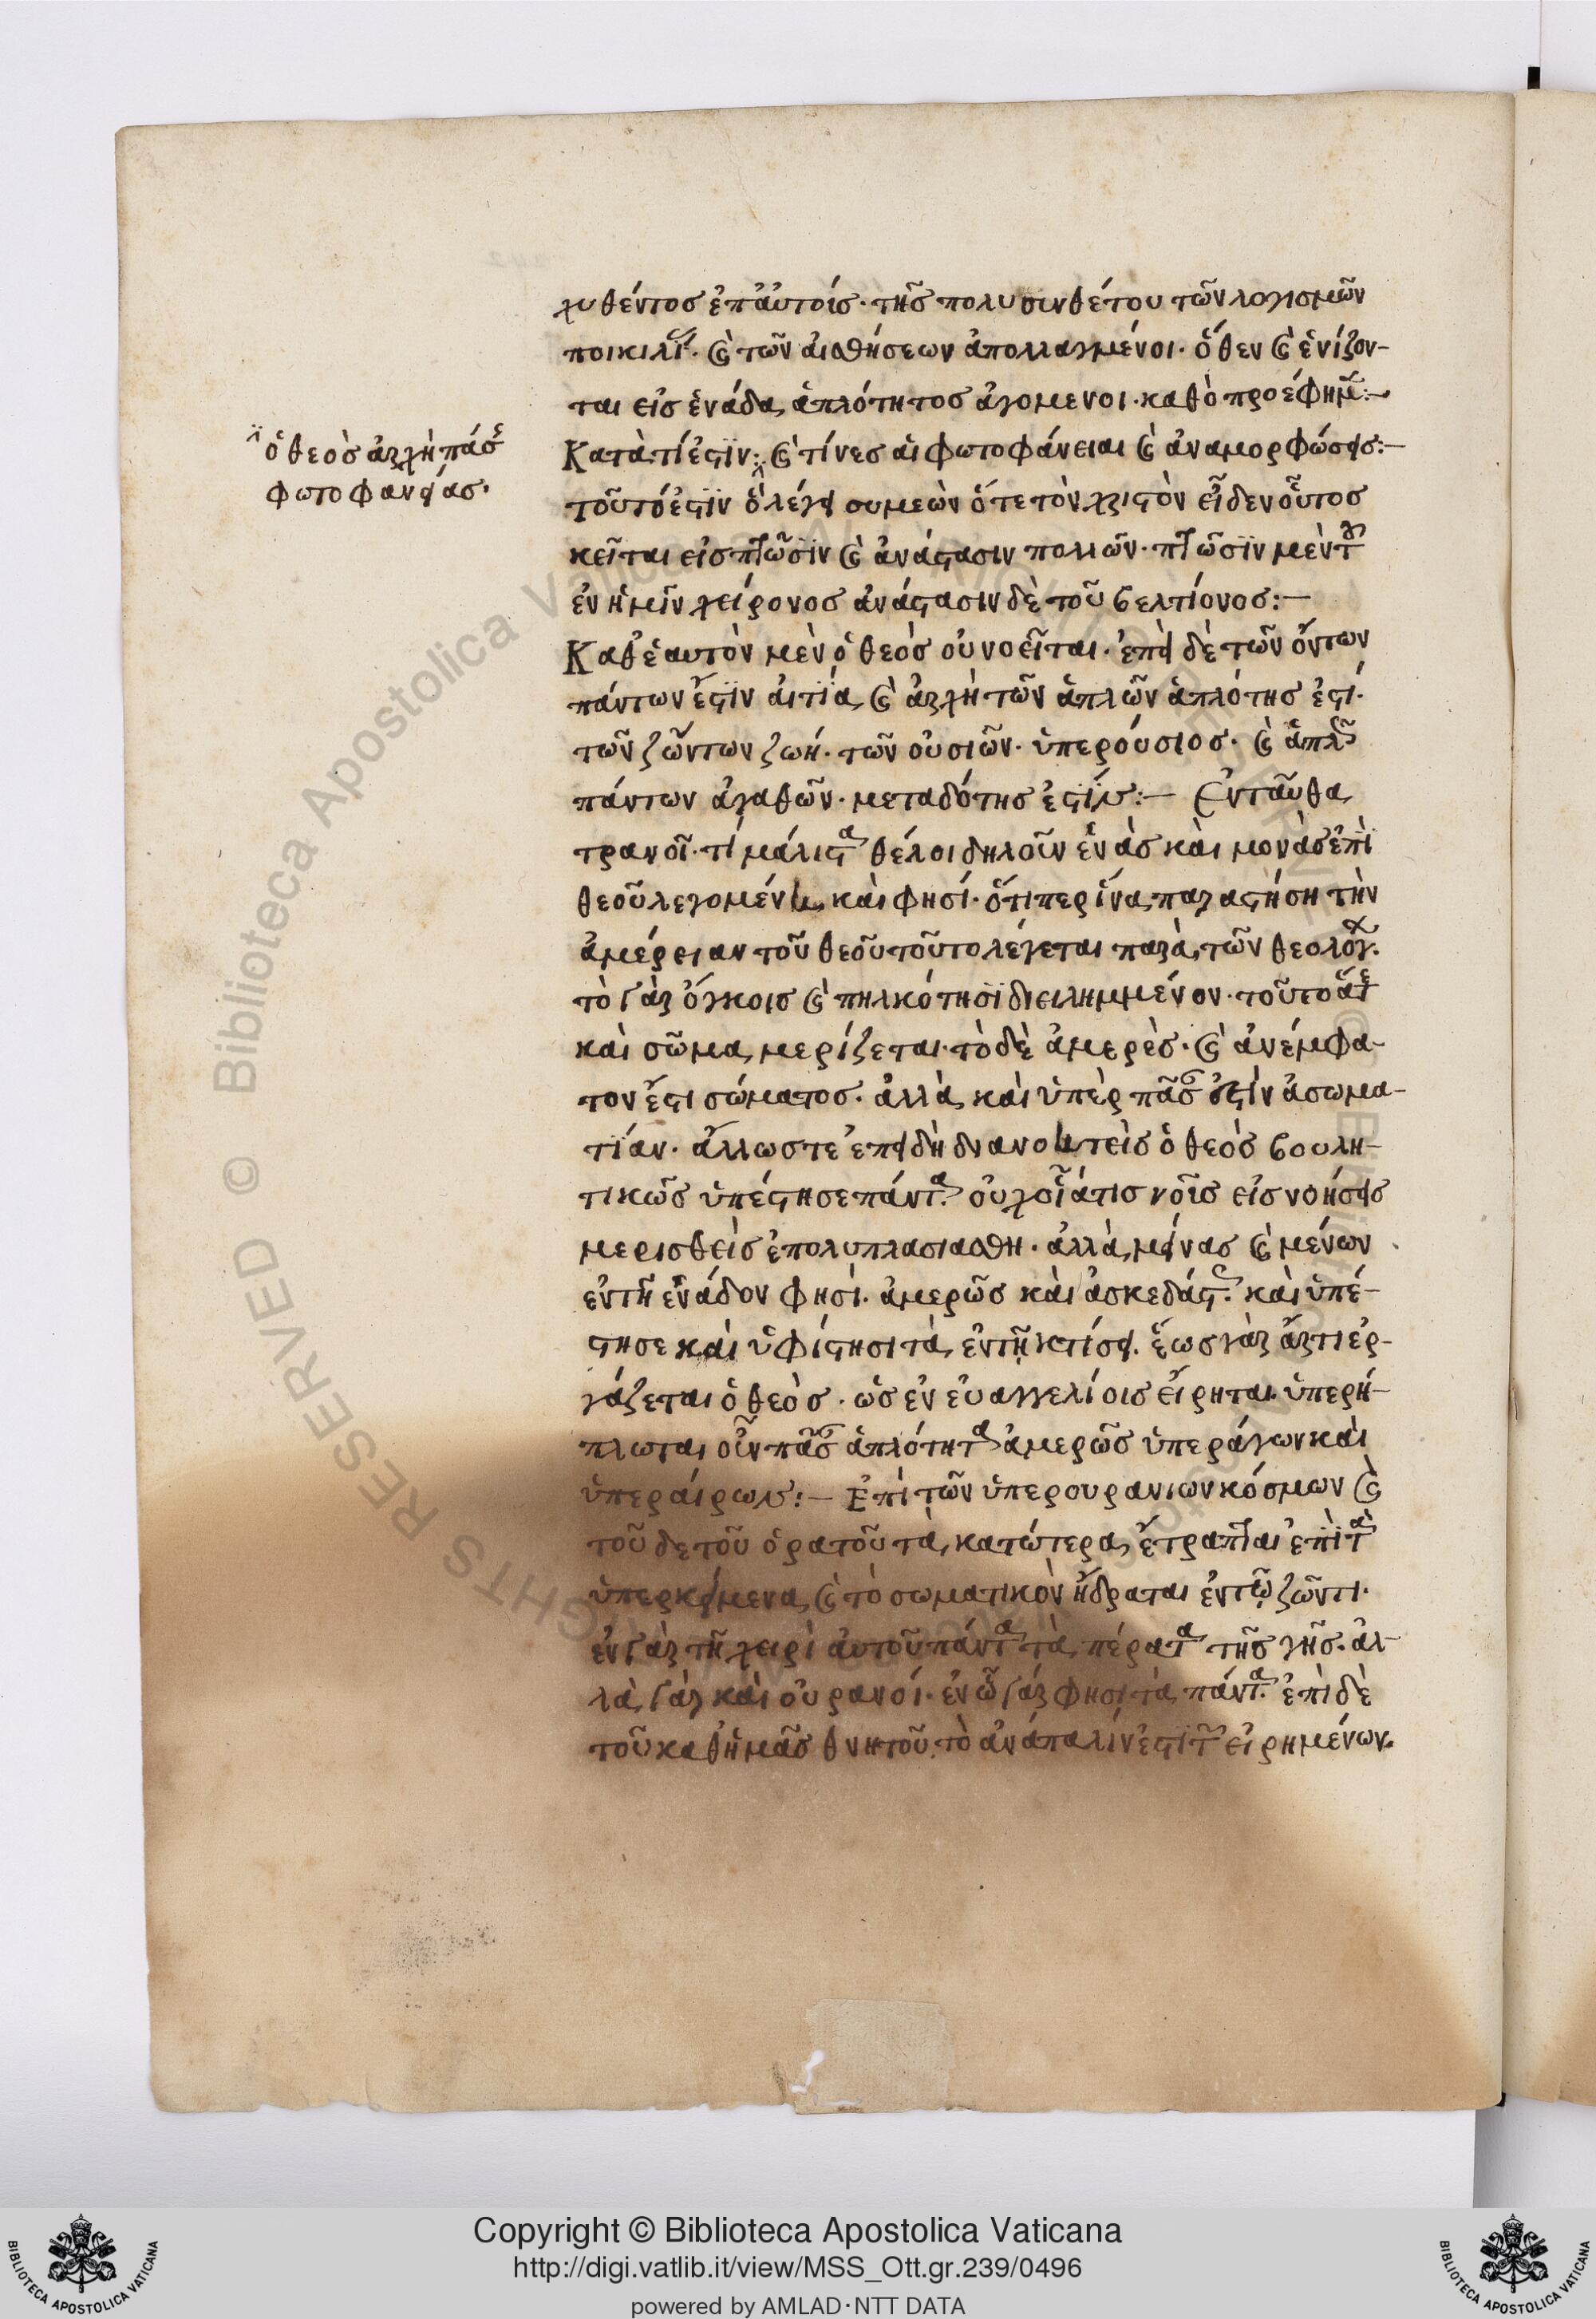 χυθέντος ἐπ' αὐτοῖς· τῆς πολυσυνθέτου τῶν λογισμῶν
ποικιλί· καὶ τῶν αἰσθήσεων ἀπολλαγμένοι· ὅθεν καὶ ἑνίζον-
ται εἰς ἑνάδα, ἁπλότητος ἀγομενοι· καθὸ προέφημ:-
ὁ θεὸς ἀρχὴ πάσ
φωτοφανείας·
Κατὰ τί ἐστϊν: καὶ τίνες αἱ φωτοφάνειαι καὶ ἀναμορφώσεις:-
τοῦτό ἐστϊν ὃ λέγει συμεὼν ὅτε τὸν χριστὸν εἶδεν οὗτος
κεῖται εἰς πτῶσϊν καὶ ἀνάστασιν πολλῶν· πτῶσϊν μὲν τοῦ
ἐν ἡμῖν χείρονος ἀνάστασιν δὲ τοῦ βελτίονος:-
Καθ' ἑαυτὸν μὲν ὁ θεὸς οὐ νοεῖται· ἐπεὶ δὲ τῶν ὄντων
πάντων ἐστϊν αἰτϊα, καὶ ἀρχὴ τῶν ἁπλῶν ἁπλότης ἐστί·
τῶν ζώντων ζωή· τῶν οὐσιῶν· ὑπερούσιος· καὶ ἁπλῶς
πάντων ἀγαθῶν· μεταδότης ἐστϊν:- Ἐνταῦθα
τρανοῖ· τί μάλιστα θέλοι δηλοῦν ἑνὰς καὶ μονὰς ἐπὶ
θεοῦ λεγομένη, καὶ φησί· ὅτιπερ ἵνα παραστήση τὴν
ἀμέρειαν τοῦ θεοῦ τοῦτο λέγεται παρὰ τῶν θεολόγων·
τὸ γὰρ ὄγκοις καὶ πηλκότησϊ διειλημμένον· τοῦτο
καὶ σῶμα, μερίζεται· τὸ δὲ ἀμερὲς· καὶ ἀνέμφα-
τον ἐστι σώματος· ἀλλὰ καὶ ὑπὲρ πᾶσαν ἐστὶν ἀσωμα-
τίαν· ἄλλως τε ἐπειδὴ διανοητεὶς ὁ θεὸς βουλη-
τικῶς ὑπέστησε πάντα· οὐχ οἷά τις νοῦς εἰς νοήσεις
μερισθεὶς ἐπολυπλασιασθη· ἀλλὰ μείνας καὶ μένων
ἐν τῆ ἑνάδον φησὶ· ἀμερῶς καὶ ἀσκεδάστως· καὶ ὑπέ-
στησε καὶ ὑφίστησι τὰ ἐν τῇ κτίσει· ἕως γὰρ ἄρτι ἐρ-
γάζεται ὁ θεὸς· ὡς ἐν εὐαγγελίοις εἴρηται· ὑπερή-
πλωται οὖν πᾶσαν ἁπλότητα ἀμερῶς ὑπεράγων καὶ
ὑπεραίρων:- Ἐπὶ τῶν ὑπερουρανιων κόσμων καὶ
τοῦ δε τοῦ ὁρατοῦ τὰ κατώτερα, ἐτραπται ἐπὶ τὰ
ὑπερκείμενα, καὶ τὸ σωματικὸν ἥδραται ἐν τῷ ζῶντι·
ἐν γὰρ τῆ χειρὶ αὐτοῦ πάντα τὰ πέρατα τῆς γῆς· ἀλ-
λὰ γὰρ καὶ οὐρανοί· ἐν ὧ γάρ φησι τὰ πάντα· ἐπὶ δὲ
τοῦ καθ' ἡμᾶς θνητοῦ, τὸ ἀνάπαλίν ἐστι τῶν εἰρημένων.
Copyright © Biblioteca Apostolica Vaticana
http://digi.vatlib.it/view/MSS_Ott.gr.239/0496
powered by AMLAD·NTT DATA